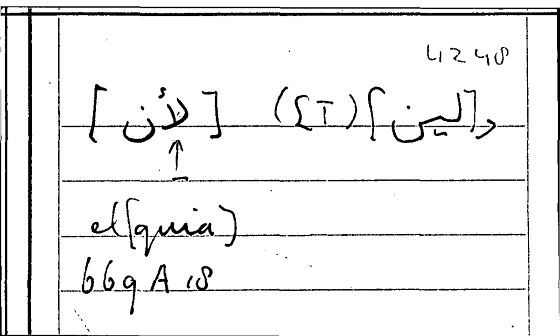 4248
و[لين] (ΣT) [لأن]
↑
el[quia]
669 A 18